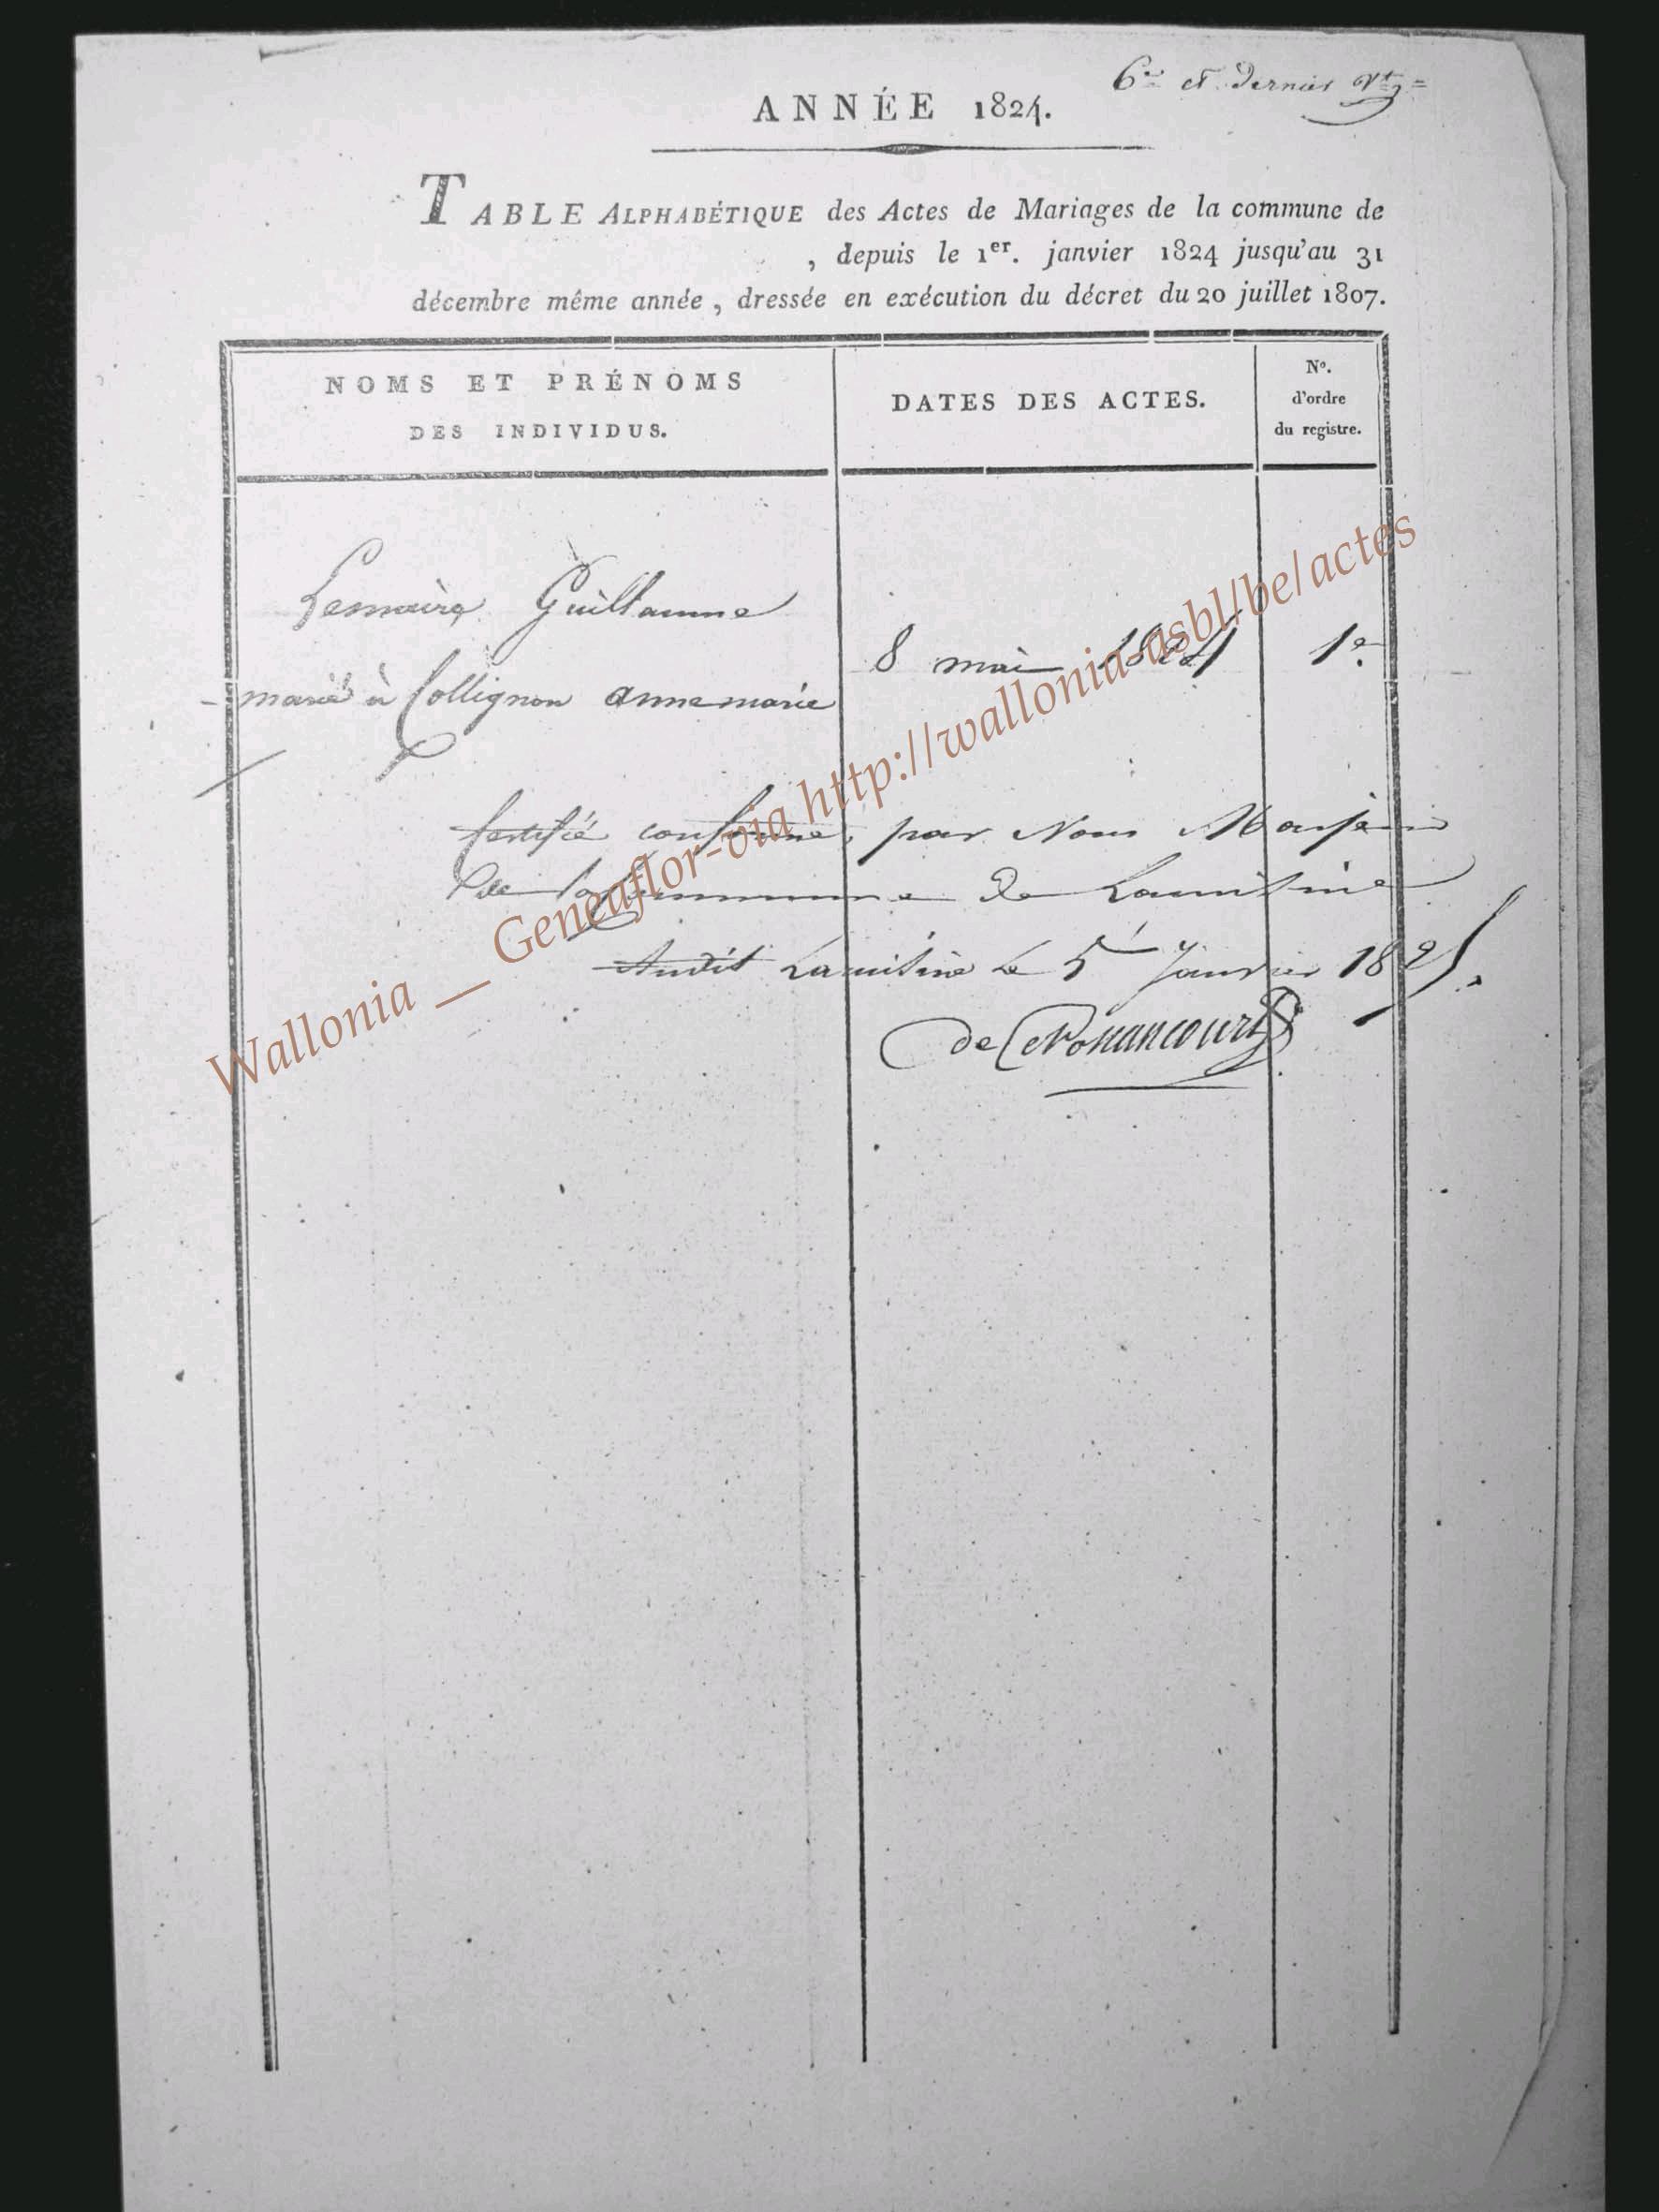 6e et dernier
ANNÉE 1824.
TABLE ALPHABÉTIQUE des Actes de Mariages de la commune de
, depuis le 1er. janvier 1824 jusqu'au 31
décembre même année, dressée en exécution du décret du 20 juillet 1807.
NOMS ET PRÉNOMS
DES INDIVIDUS.
DATES DES ACTES.
No.
d'ordre
du registre.
Lemaire Guillaume
marié à Collignon anne marie
8 mai 1824
1e.
Certifié conforme, par Nous
De la Commune De
Audit Le 5 Janvier 1825.
Wallonia __ Geneaflor-via http://wallonia-asbl/be/actes